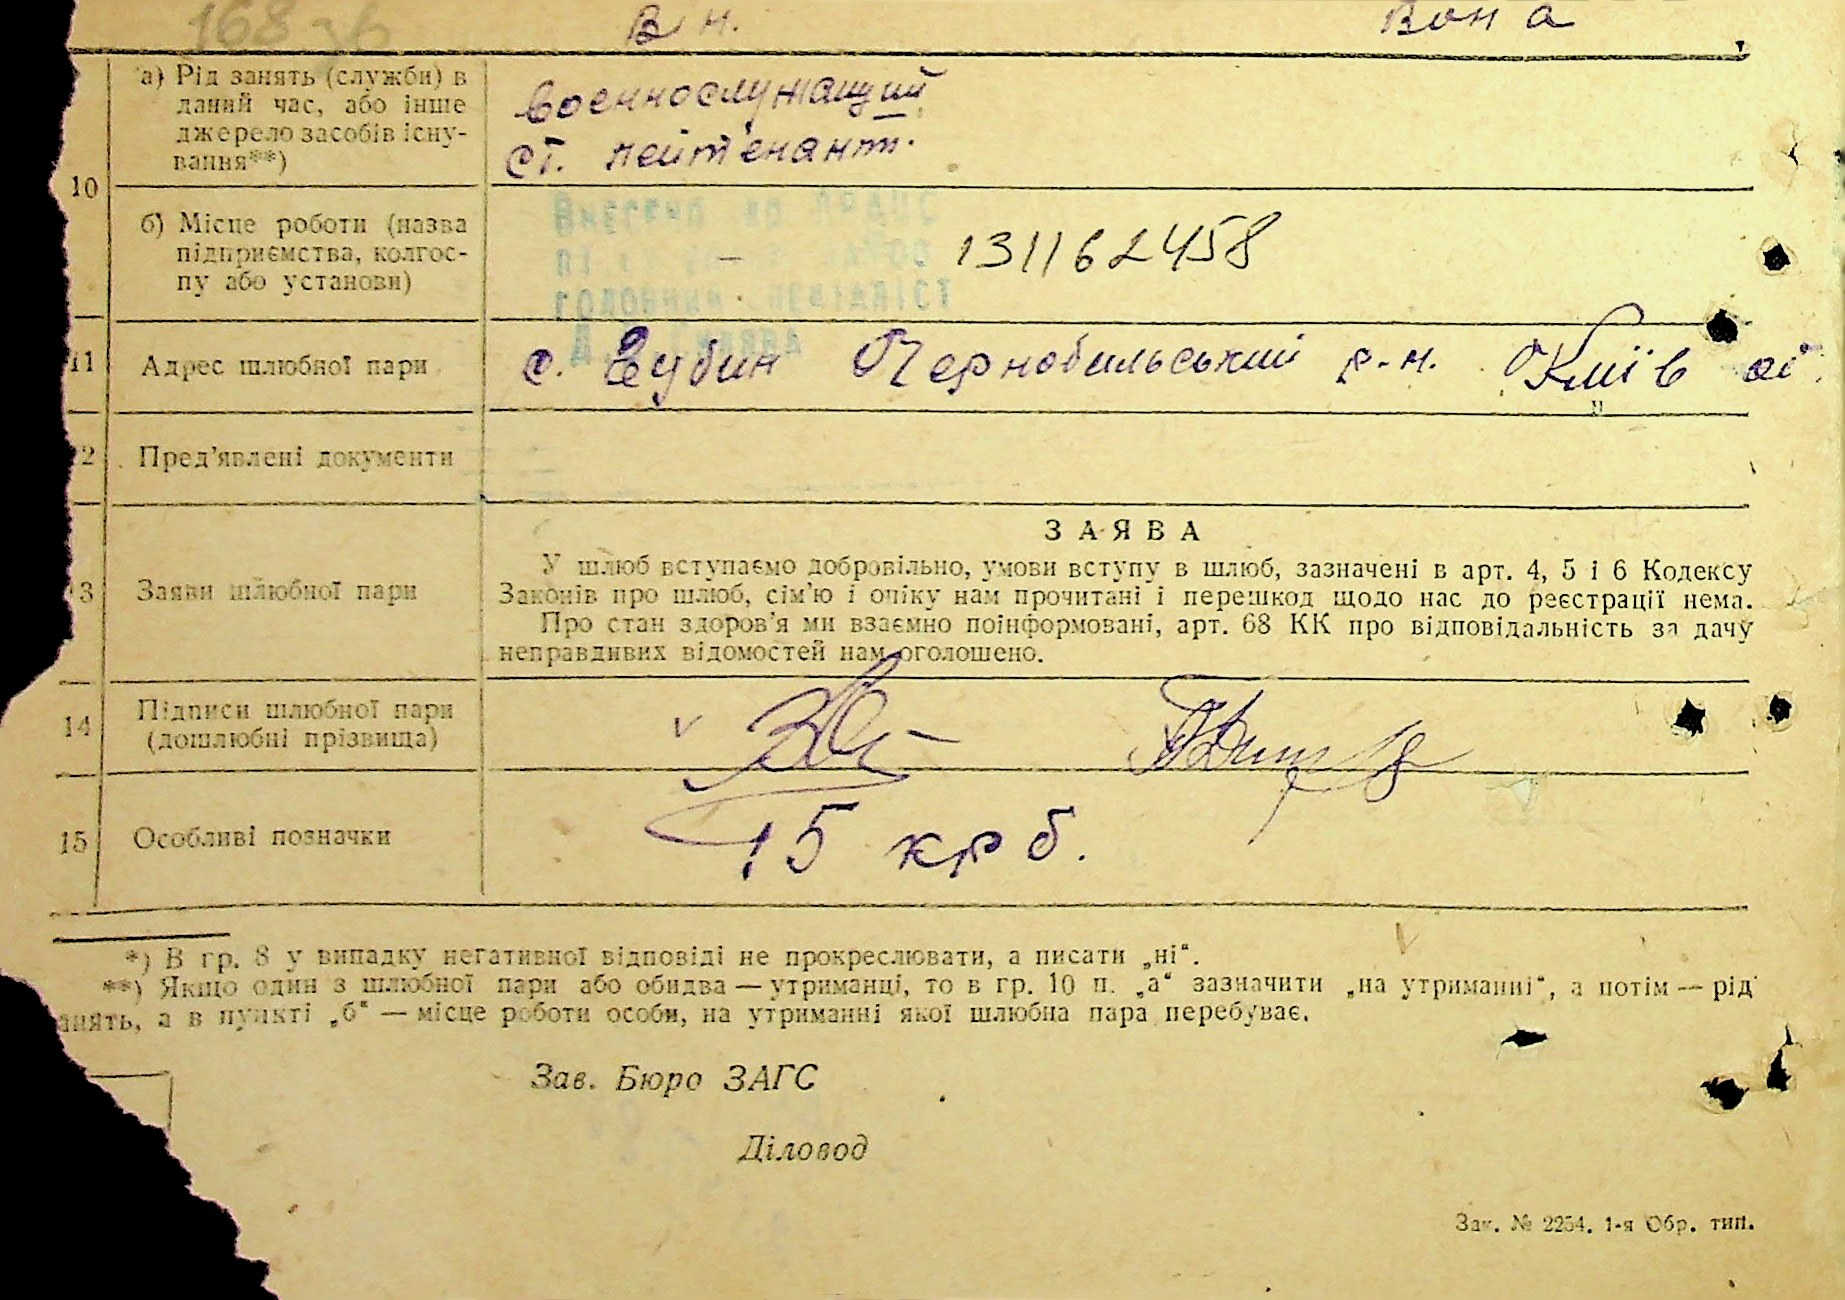 168 зв
Він. Вона
10
а) Рід занять (служби) в
даний час, або інше
джерело засобів існу-
вання**)
военнослужащий
ст. лейтенант.
б) Місце роботи (назва
підприємства, колгос-
пу або установи)
– 131162458
Внесено до ДРАЦС
головний спеціаліст
11 Адрес шлюбної пари с. Зубин Чернобильський р-н. Київ об
2 Пред'явлені документи
3 Заяви шлюбної пари
ЗАЯВА
У шлюб вступаємо добровільно, умови вступу в шлюб, зазначені в арт. 4, 5 і 6 Кодексу
Законів про шлюб, сім'ю і опіку нам прочитані і перешкод щодо нас до реєстрації нема.
Про стан здоров'я ми взаємно поінформовані, арт. 68 КК про відповідальність за дачу
неправдивих відомостей нам оголошено.
14 Підписи шлюбної пари
(дошлюбні прізвища)
15 Особливі позначки 15 крб.
*) В гр. 8 у випадку негативної відповіді не прокреслювати, а писати „ні“.
**) Якщо один з шлюбної пари або обидва — утриманці, то в гр. 10 п. „а“ зазначити „на утриманні“, а потім — рід
анять, а в пункті „б“ — місце роботи особи, на утриманні якої шлюбна пара перебуває.
Зав. Бюро ЗАГС
Діловод
Зак. № 2254. 1-я Обр. тип.